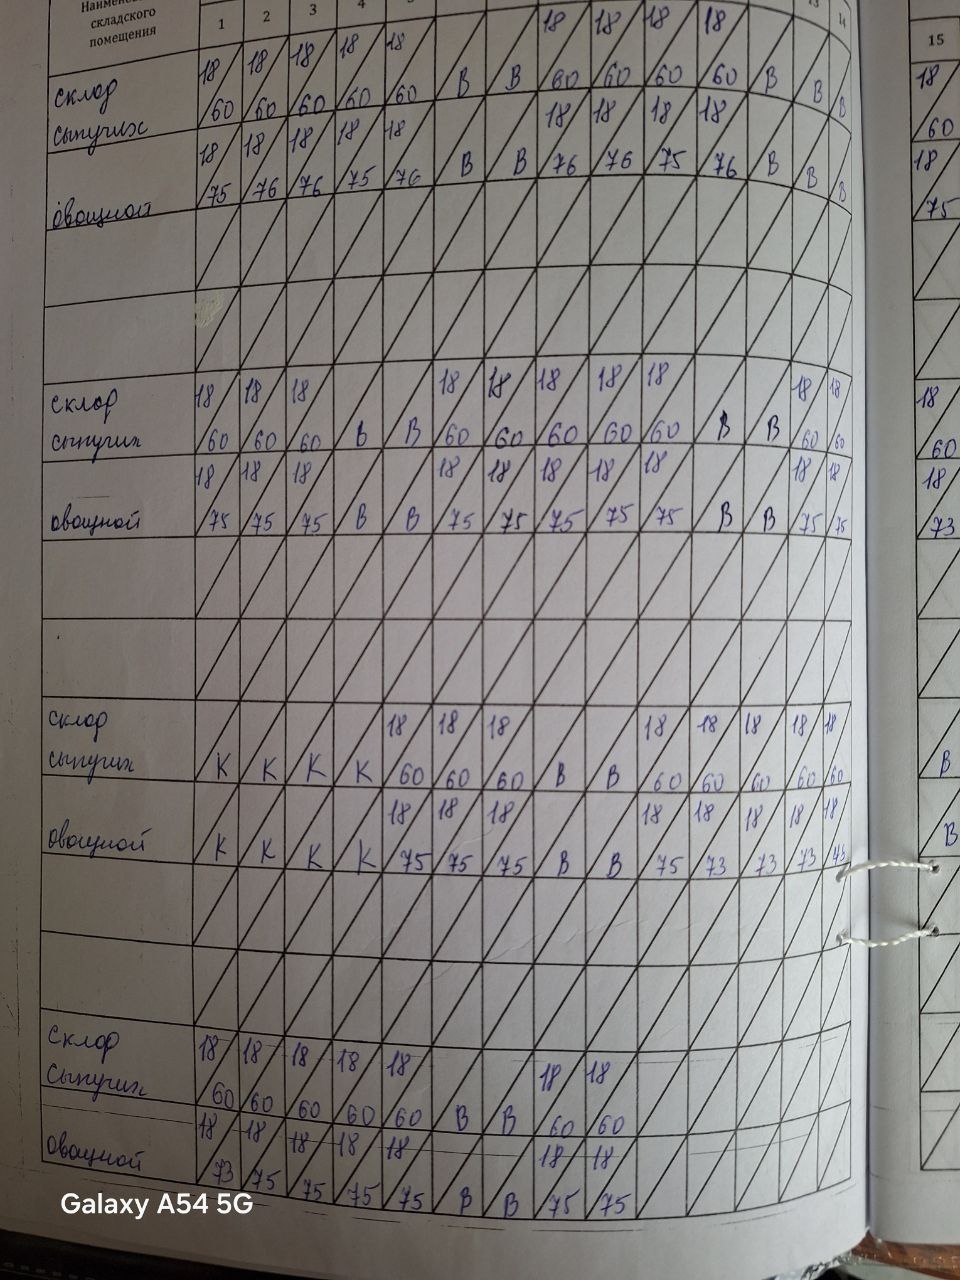 складского
помещения
1 2 3 4 14 15
склад 18 18 18 18 18 18 18 18 18 18
сыпучих 60 60 60 60 60 В В 60 60 60 60 В В В 60
18 18 18 18 18 18 18 18 18 18
овощной 75 76 76 75 76 В В 76 76 75 76 В В В 75
склад 18 18 18 18 18 18 18 18 18 18 18
сыпучих 60 60 60 В В 60 60 60 60 60 В В 60 60 60
18 18 18 18 18 18 18 18 18 18 18
овощной 75 75 75 В В 75 75 75 75 75 В В 75 75 73
склад 18 18 18 18 18 18 18 18
сыпучих К К К К 60 60 60 В В 60 60 60 60 60 В
18 18 18 18 18 18 18 18
овощной К К К К 75 75 75 В В 75 73 73 73 В
склад 18 18 18 18 18 18 18
сыпучих 60 60 60 60 60 В В 60 60
18 18 18 18 18 18 18
овощной 73 75 75 75 75 В В 75 75
Galaxy A54 5G